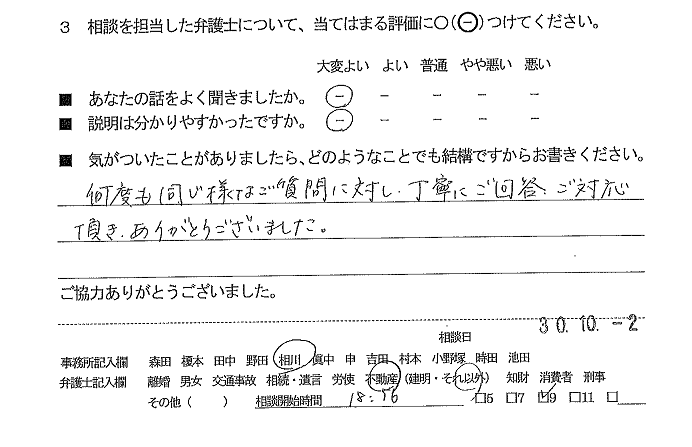 3 相談を担当した弁護士について、当てはまる評価に○(⊖)つけてください。
大変よい よい 普通 やや悪い 悪い
■ あなたの話をよく聞きましたか。 － － － － －
■ 説明は分かりやすかったですか。 － － － － －
■ 気がついたことがありましたら、どのようなことでも結構ですからお書きください。
何度も同じ様なご質問に対し、丁寧にご回答、ご対応
頂き、ありがとうございました。
ご協力ありがとうございました。
30.10.-2
相談日
事務所記入欄 森田 榎本 田中 野田 相川 眞中 申 吉田 村本 小野塚 時田 池田
弁護士記入欄 離婚 男女 交通事故 相続・遺言 労使 不動産 (建明・それ以外) 知財 消費者 刑事
その他 ( ) 相談開始時間 18:56 □5 □7 ☑9 □11 □